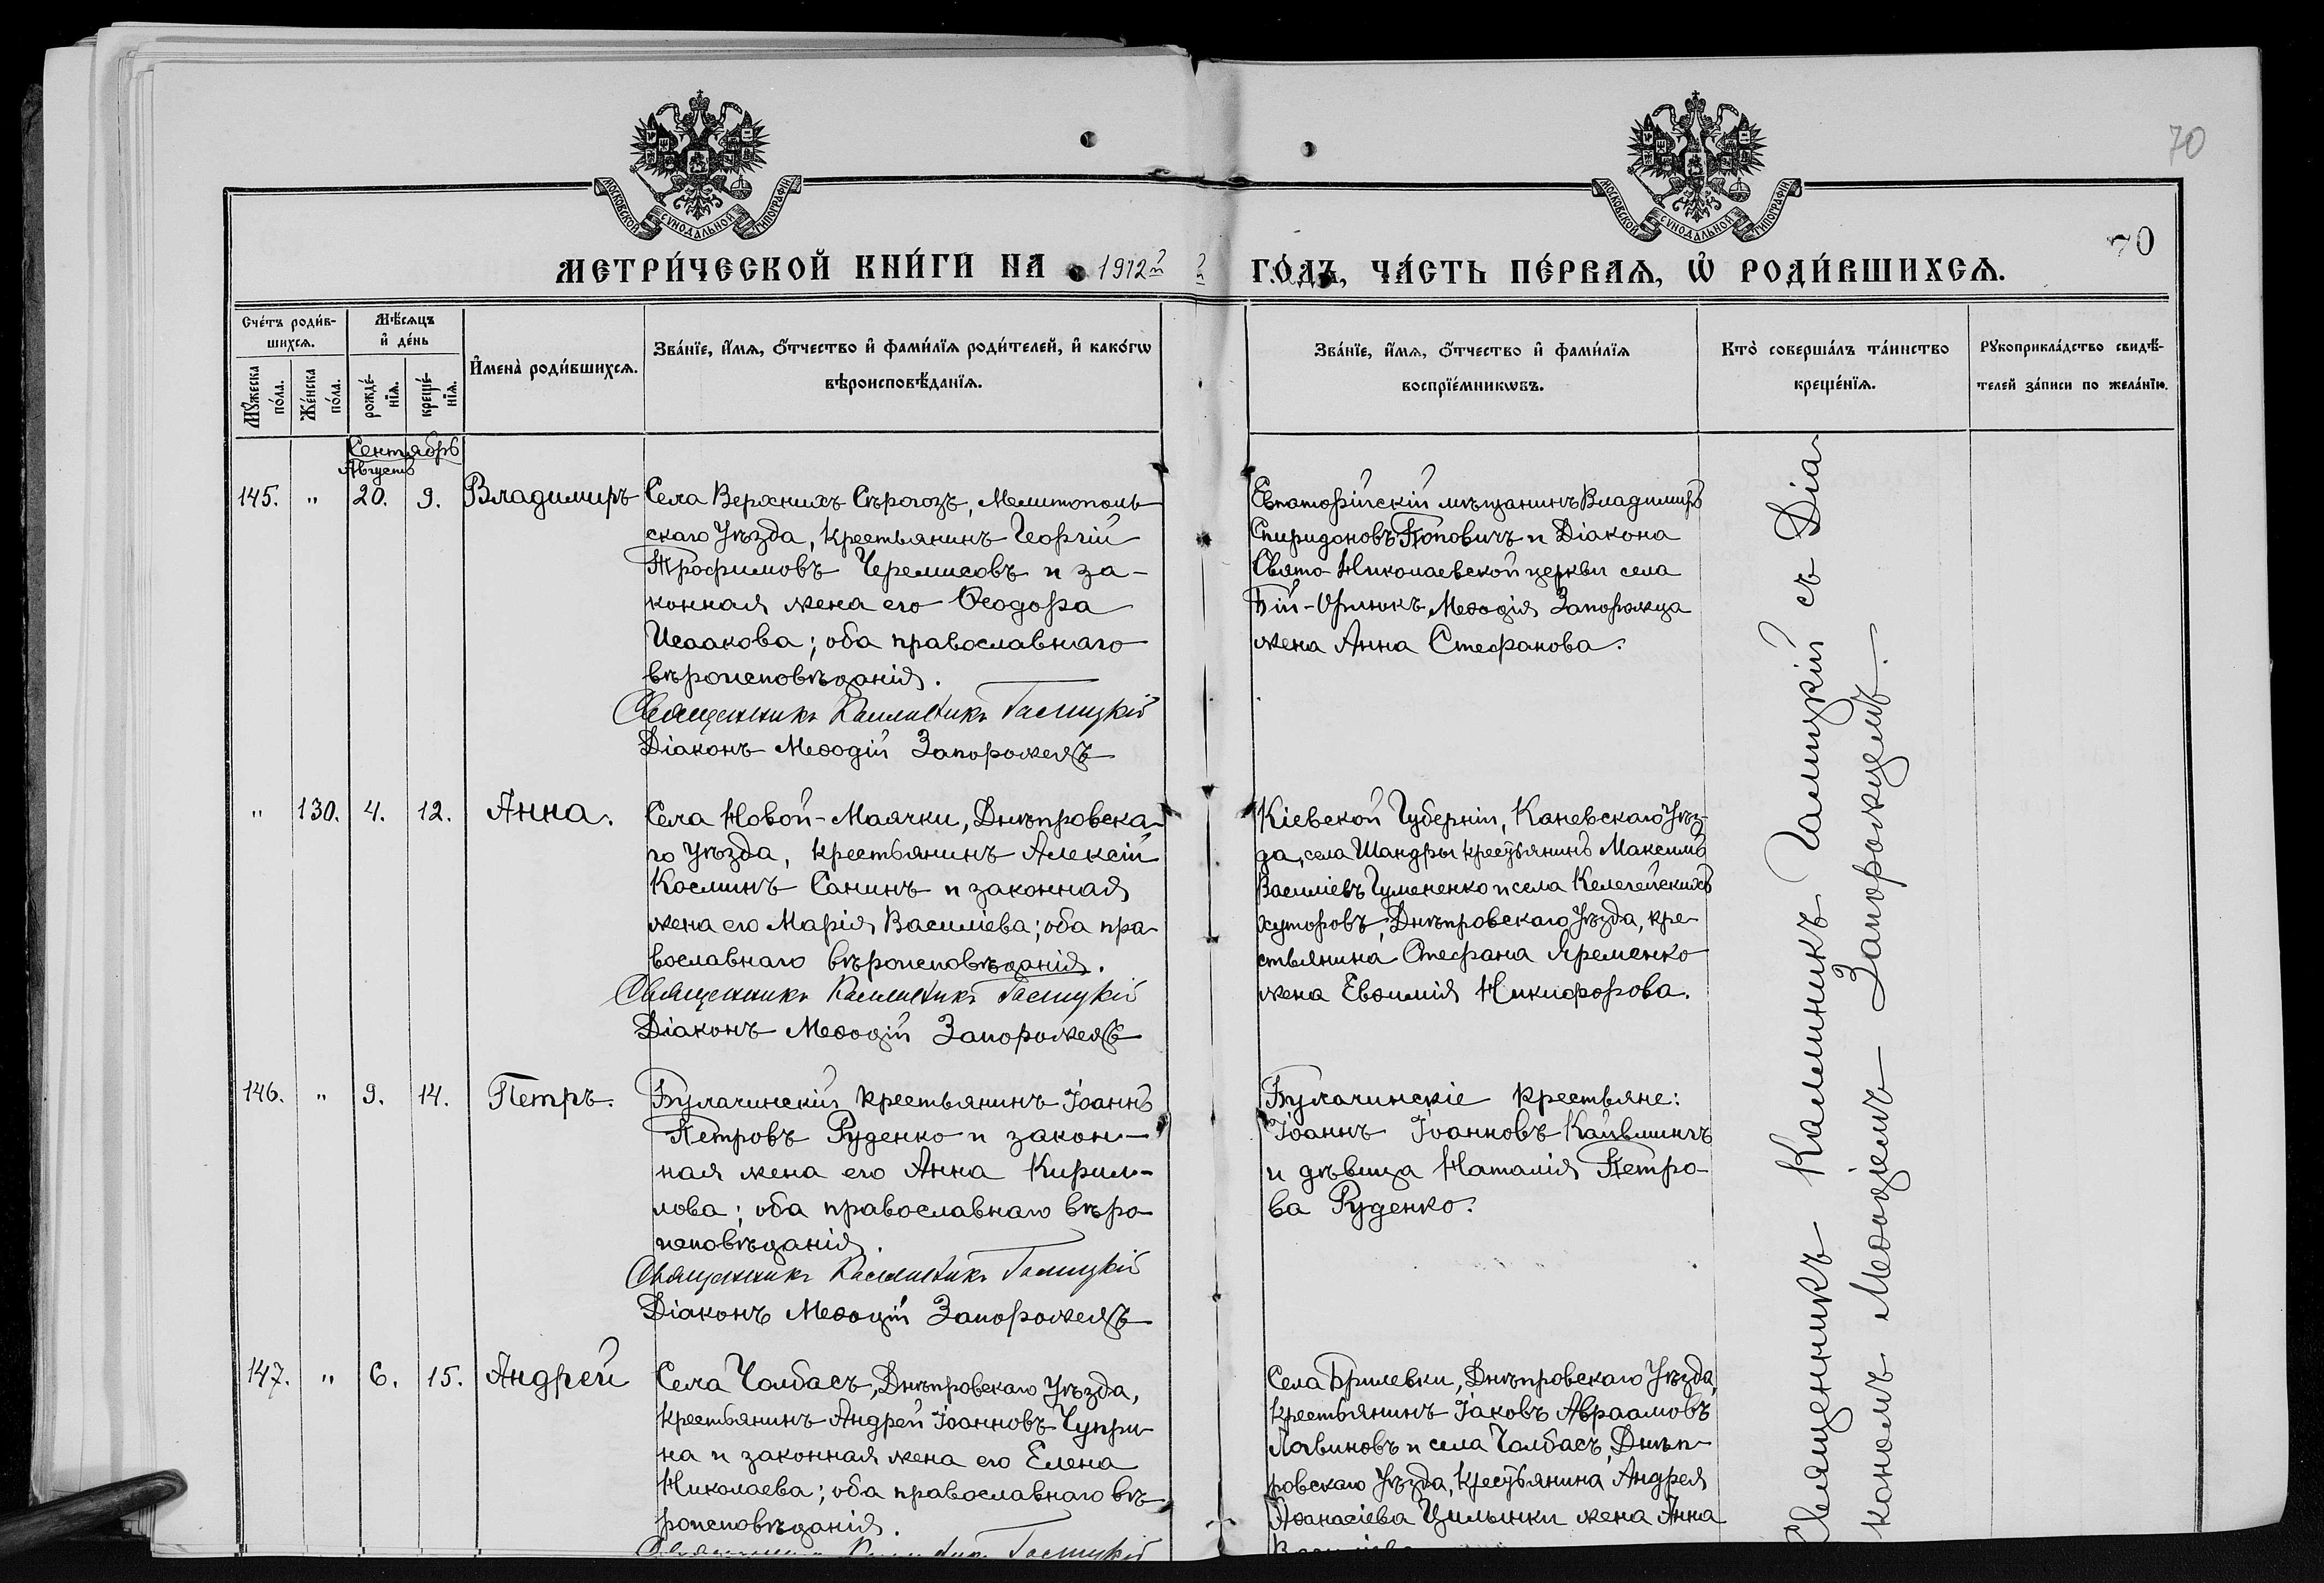 70
МОСКОВСКОЙ СѴНОДАЛЬНОЙ ТИПОГРАФІИ
МОСКОВСКОЙ СѴНОДАЛЬНОЙ ТИПОГРАФІИ
70
МЕТРИ́ЧЕСКОЙ КНИ́ГИ НА 1912й
й ГО́ДЪ, ЧА́СТЬ ПЕ́РВАѦ, Ѡ҆ РОДИ́ВШИХСѦ.
Сче́тъ роди́в-
шихсѧ.
Мꙋ́жеска
по́ла.
Же́нска
по́ла.
Мѣ́сѧцъ
и҆ де́нь
рожде́-
нїѧ.
креще́-
нїѧ.
И҆мена̀ роди́вшихсѧ.
Зва́нїе, и҆́мѧ, ѻ҆́тчество и҆ фами́лїѧ роди́телей, и҆ како́гѡ
вѣроисповѣ́данїѧ.
Зва́нїе, и҆́мѧ, ѻ҆́тчество и҆ фами́лїѧ
воспрїе́мникѡвъ.
Кто̀ соверша́лъ та́инство
креще́нїѧ.
Рꙋкоприкла́дство свидѣ́-
телей за́писи по жела́нїю.
Сентябрь
Августъ
145. " 20. 9. Владимиръ
Села Верхнихъ Сѣрогозъ, Мелитополь-
скаго Уѣзда, крестьянинъ Георгій
Трофимовъ Черемисовъ и за-
конная жена его Ѳеодора
Исаакова; оба православнаго
вѣроисповѣданія.
Священникъ Каллиникъ Галицкій
Діаконъ Меѳодій Запорожецъ
Евпаторійскій мѣщанинъ Владимиръ
Спиридоновъ Поповичъ и Діакона
Свято-Николаевской церкви села
Бій-Орлюкъ, Меѳодія Запорожца
жена Анна Стефанова.
" 130. 4. 12. Анна.
Села Новой-Маячки, Днѣпровска-
го Уѣзда, крестьянинъ Алексій
Косминъ Санинъ и законная
жена его Марія Василіева; оба пра-
вославнаго вѣроисповѣданія.
Священникъ Каллиникъ Галицкій
Діаконъ Меѳодій Запорожецъ
Кіевской Губерніи, Каневскаго Уѣз-
да, села Шандры крестьянинъ Максимъ
Василіевъ Гумененко и села Келегейскихъ
хуторовъ, Днѣпровскаго Уѣзда, кре-
стьянина Стефана Яременко
жена Евѳимія Никифорова.
146. " 9. 14. Петръ.
Булачинскій крестьянинъ Іоаннъ
Петровъ Руденко и закон-
ная жена его Анна Кирил-
лова; оба православнаго вѣро-
исповѣданія.
Священникъ Каллиникъ Галицкій
Діаконъ Меѳодій Запорожецъ
Булачинскіе крестьяне:
Іоаннъ Іоанновъ
и дѣвица Наталія Петро-
ва Руденко.
147. " 6. 15. Андрей
Села Чалбасъ, Днѣпровскаго Уѣзда,
крестьянинъ Андрей Іоанновъ Чупри-
на и законная жена его Елена
Николаева; оба православнаго вѣ-
роисповѣданія.
Священникъ Каллиникъ Галицкій
Села Брилевки, Днѣпровскаго Уѣзда,
крестьянинъ Іаковъ Авраамовъ
Логвиновъ и села Чалбасъ, Днѣп-
ровскаго Уѣзда, крестьянина Андрея
Аѳанасіева жена Анна
Священникъ Каллиникъ Галицкій съ Діа-
кономъ Меѳодіемъ Запорожцемъ.